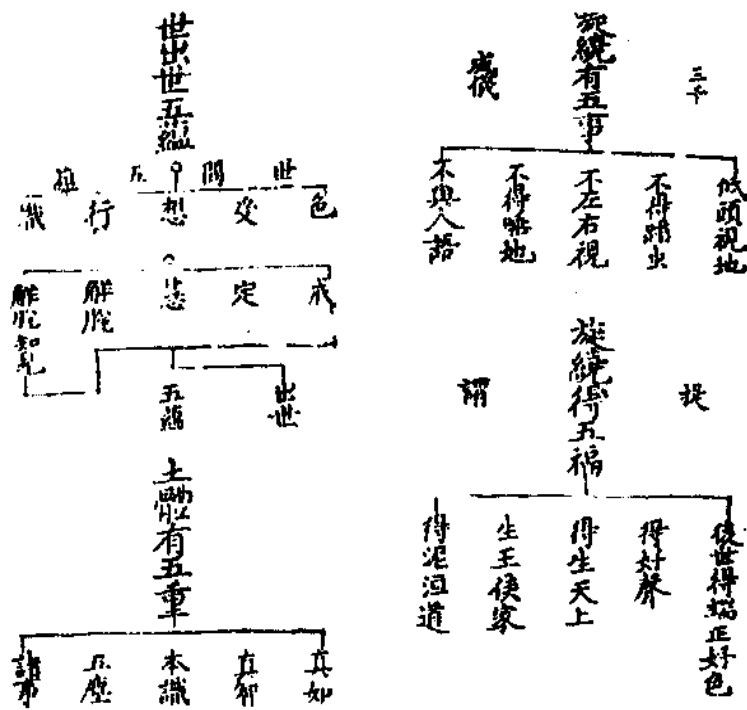 旋繞有五事
三千
威儀
低頭視地
不得蹈虫
不左右視
不得唾地
不與人語
旋繞得五福
提
謂
後世得端正好色
得好聲
得生天上
生王侯家
得泥洹道
世出世五蘊
世間五蘊
色
受
想
行
識
戒
定
慧
解脫
解脫知見
出世
五蘊
土體有五重
真如
本識
五塵